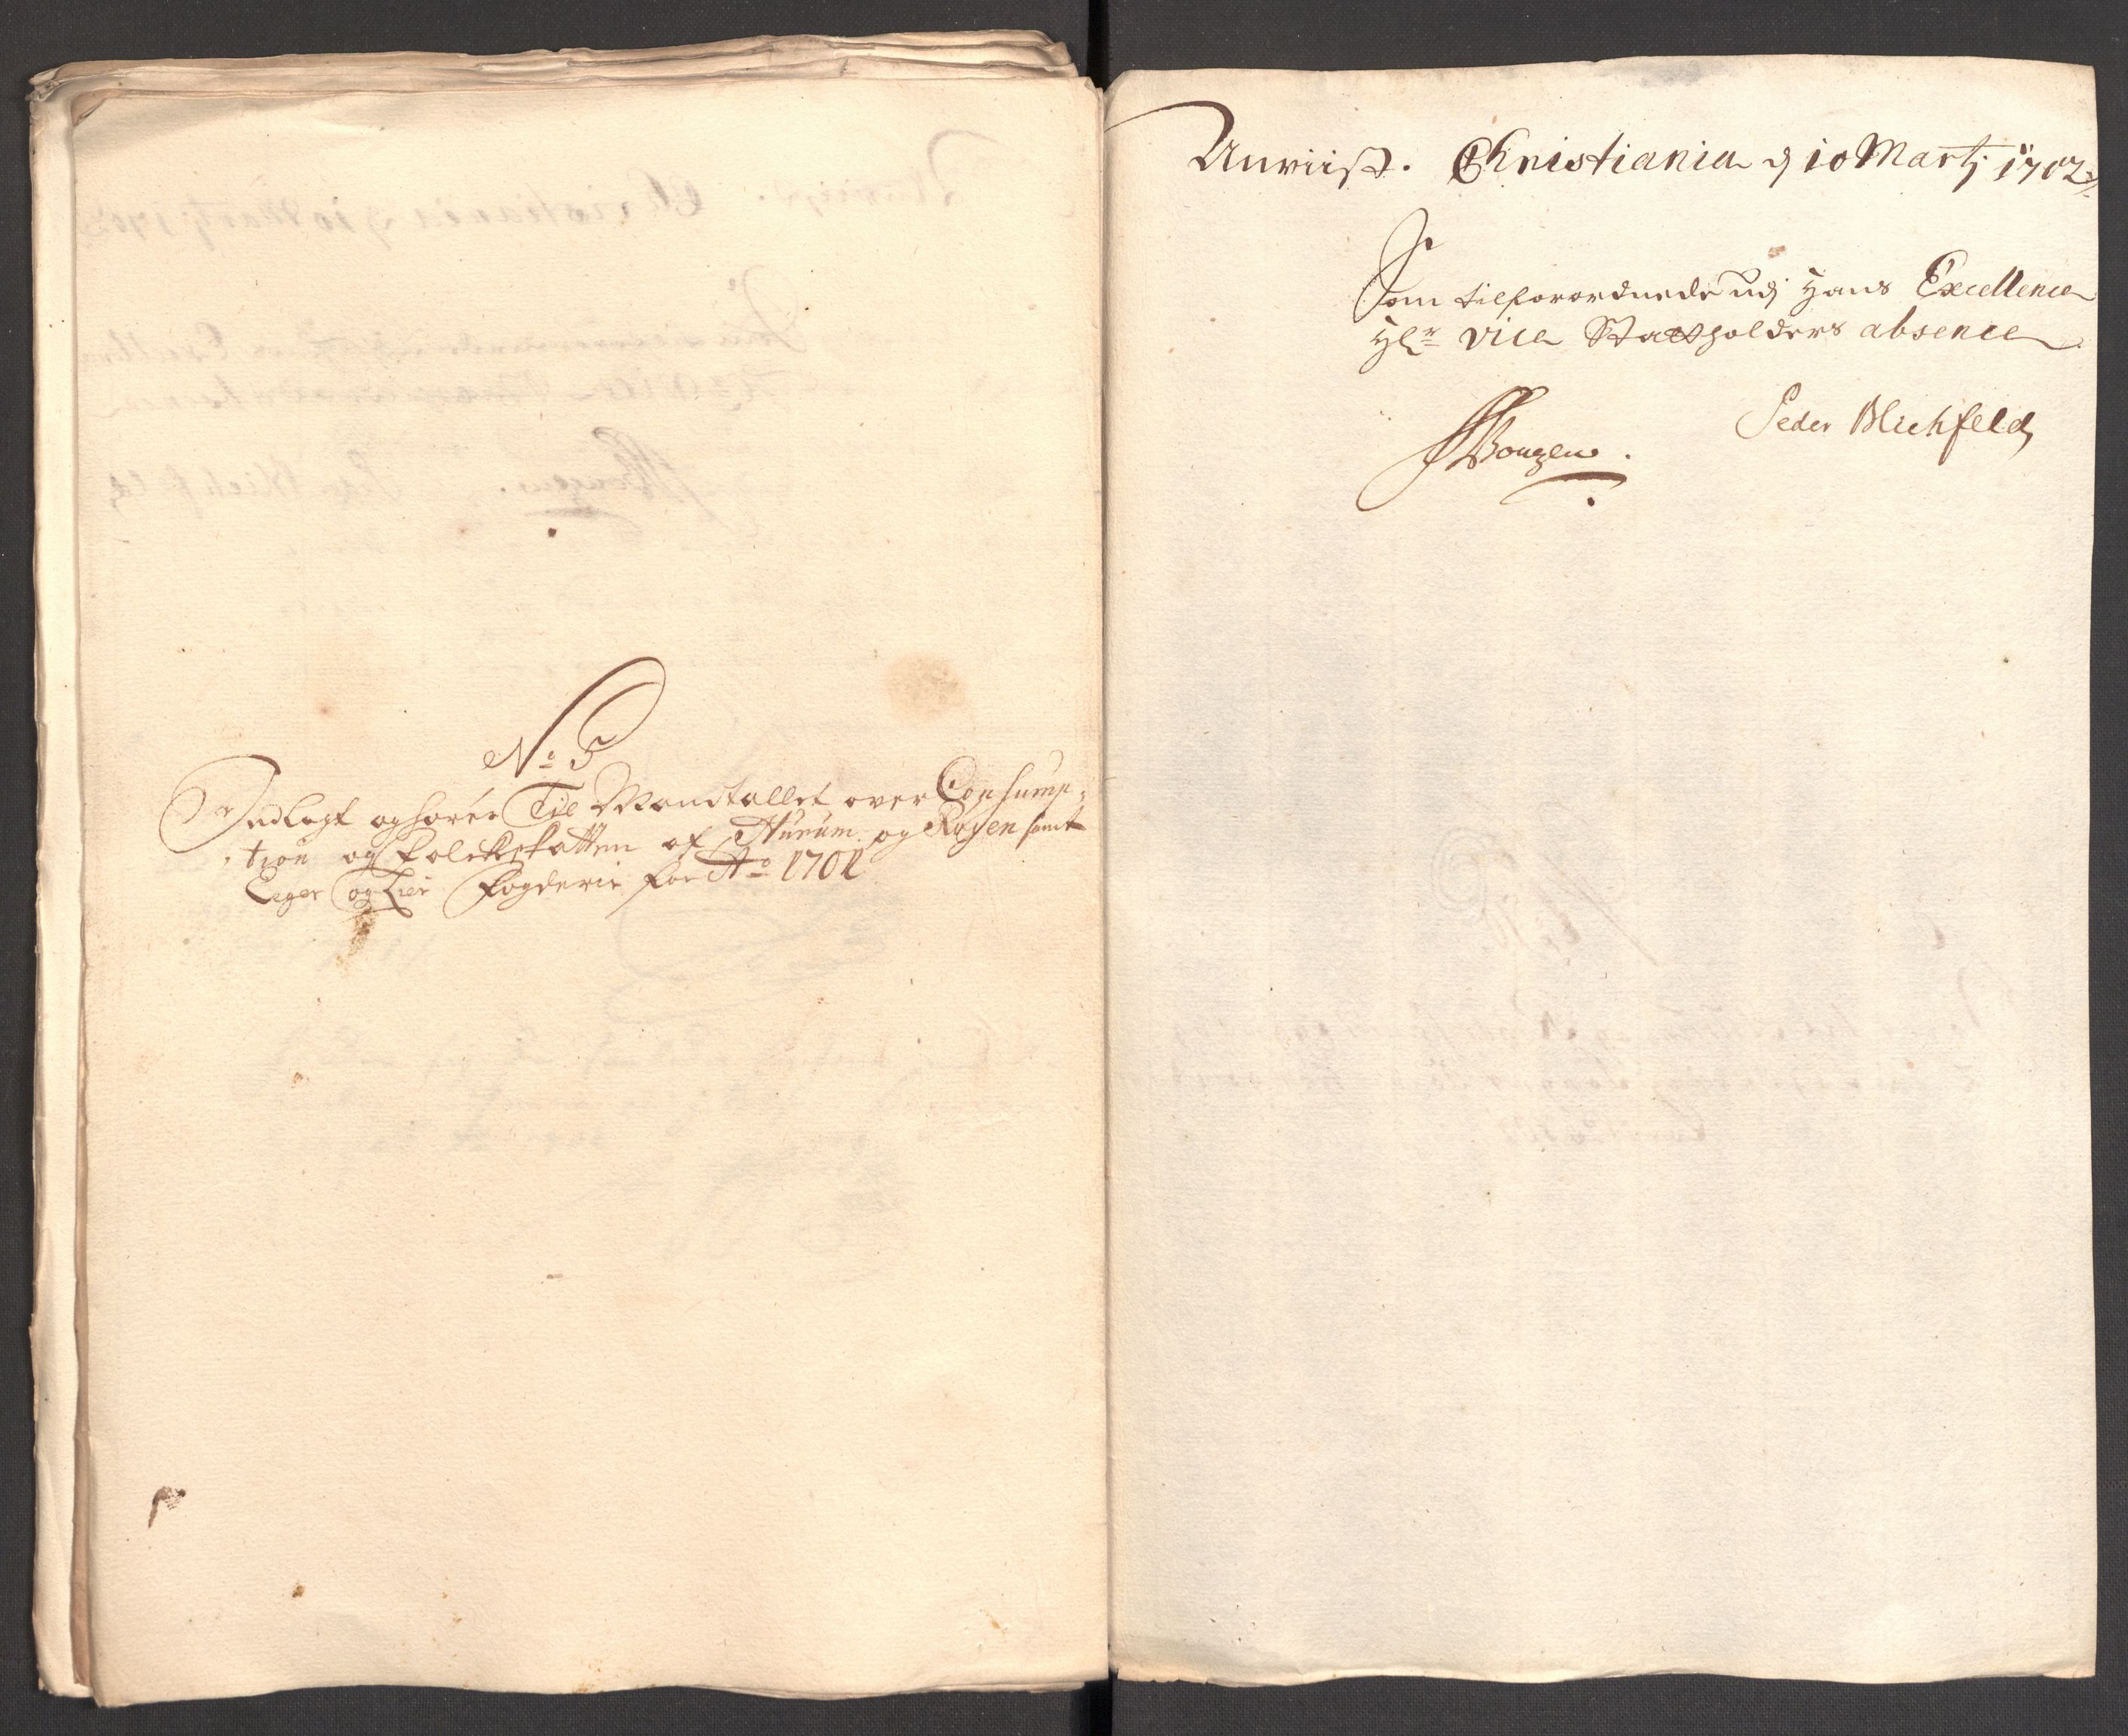 No 5
Indlagt og hører Til Mandtallet over Consump-
tion og folckeskatten af Hurum og Røyen samt
Eger og Lier fogderie for Ao 1701
Anviist. Christiania d 10 Martj 1702
Som tilforordnede udj Hans Excellence
Hr Vice Statholders absence
Peder Blichfeld